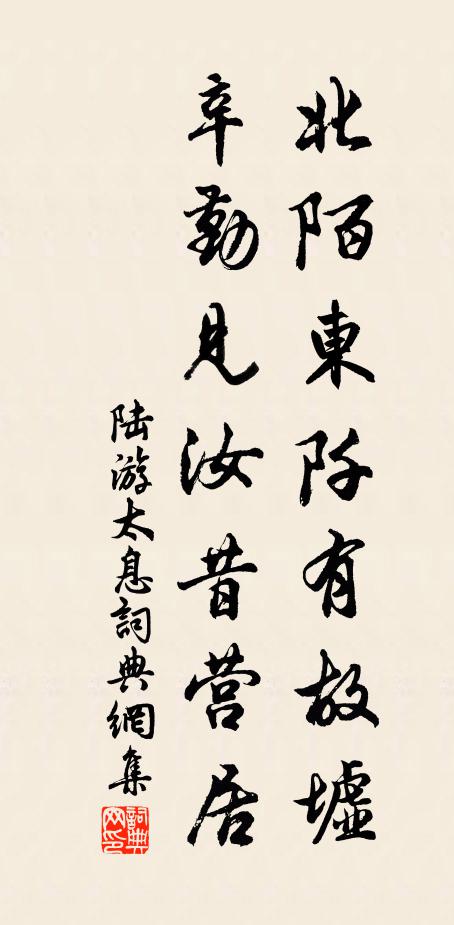 北陌東阡有故墟
辛勤見汝昔营居
陆游太息詞典網集
詞典网印